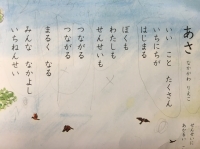 あさ
なかがわ りえこ
いい こと たくさん
いちにちが
はじまる
ぼくも
わたしも
せんせいも
つながる
つながる
まるく なる
みんな なかよし
いちねんせい